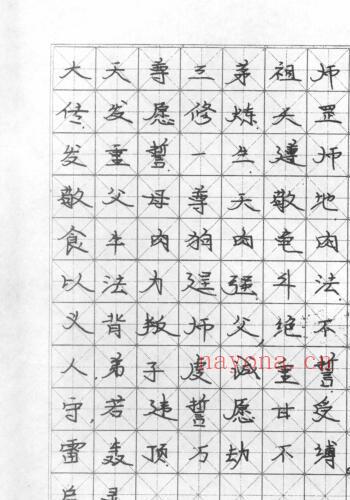 大天尊三茅祖师
传发愿修炼天罡
发重誓一生遵师
敬父母尊天敬地
食牛肉狗肉龟肉
以法力逞强斗法
义背叛师父,绝不
人,弟子虔诚重誓
守,若违誓愿甘受
雷轰顶万劫不缚
nayona.cn